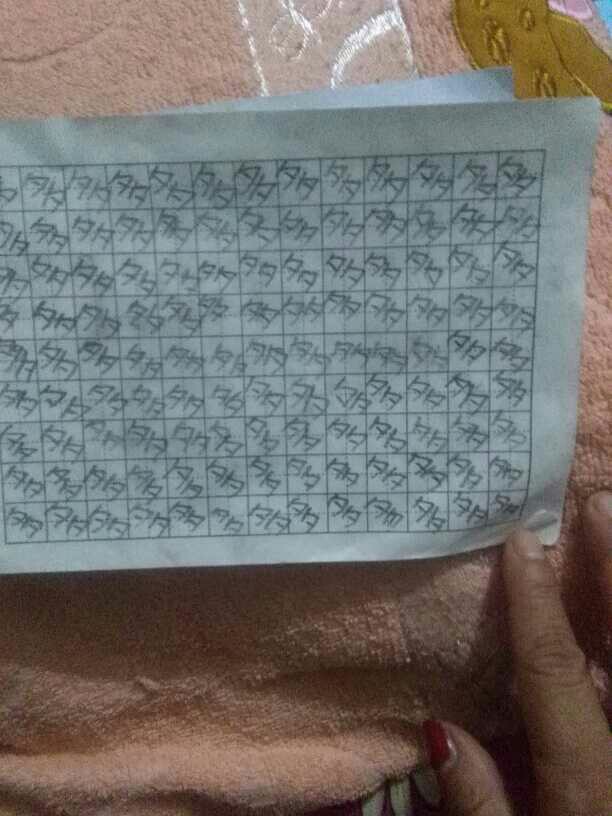 多多多多多多多多多
多多多多多多多多多
多多多多多多多多多
多多多多多多多多多
多多多多多多多多多
多多多多多多多多多
多多多多多多多多多
多多多多多多多多多
多多多多多多多多多
多多多多多多多多多
多多多多多多多多多
多多多多多多多多多
多多多多多多多多多